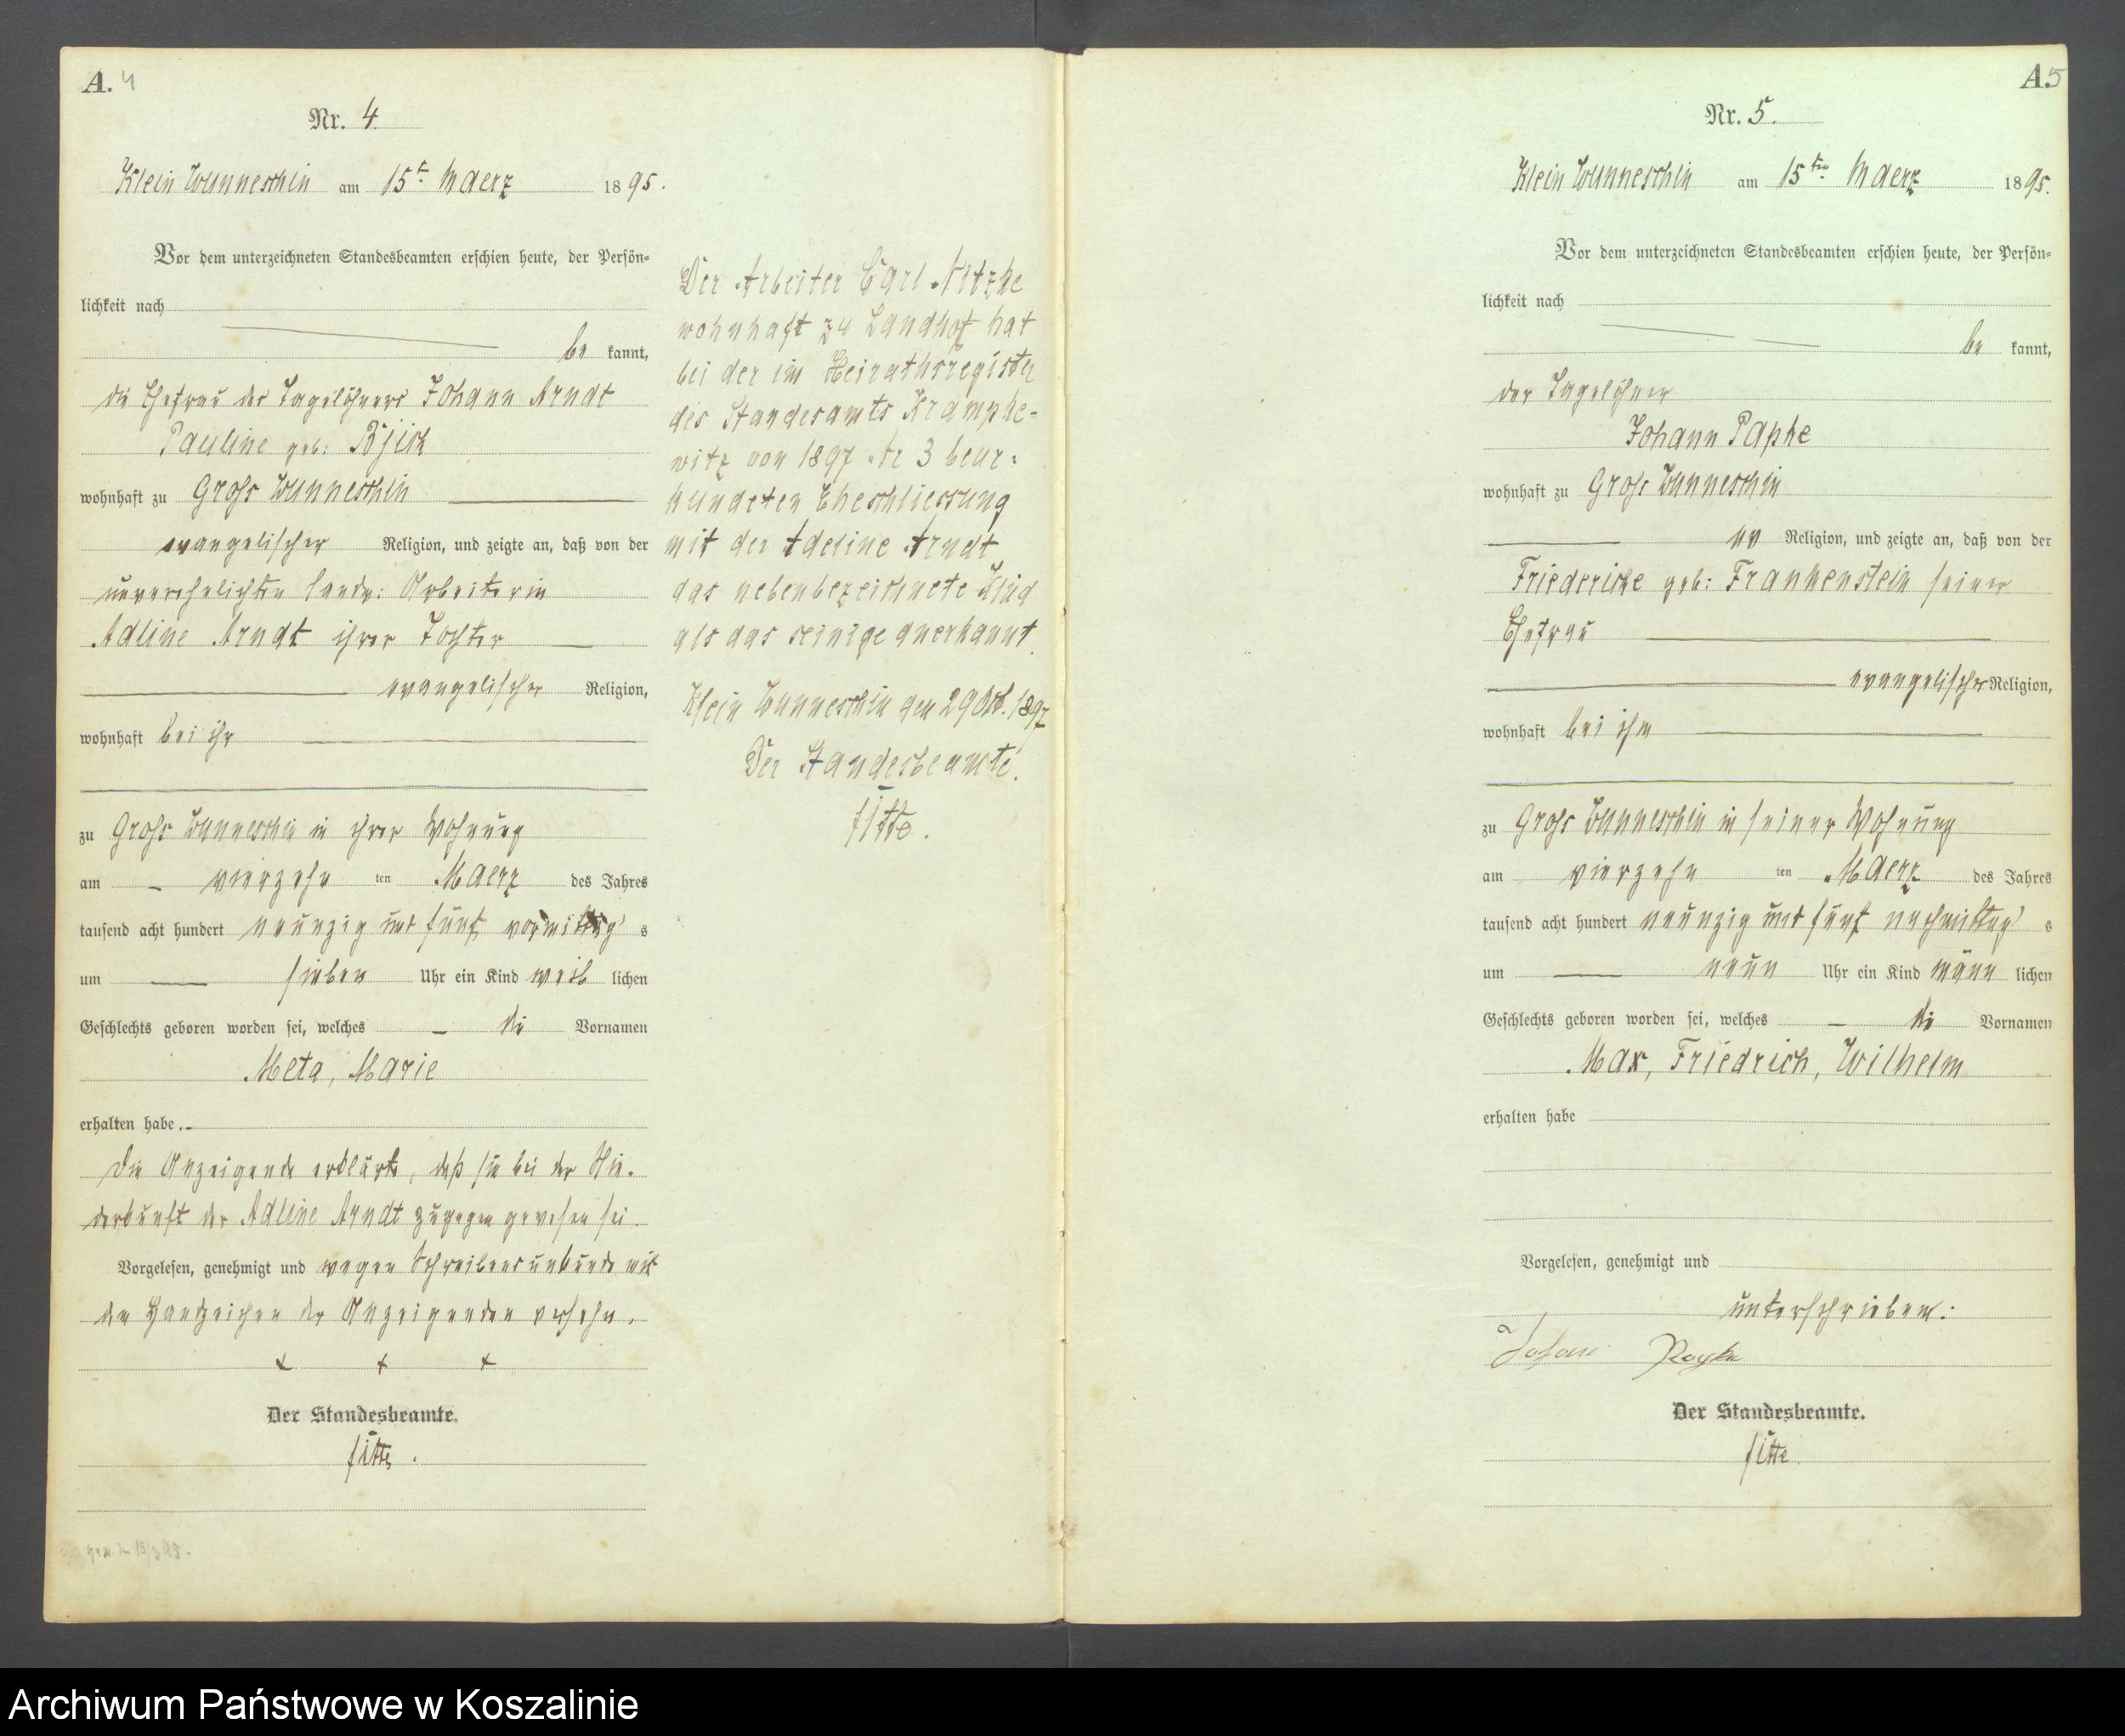 A. 4
Nr. 4
Klein Wunneschin am 15t. Maerz 1895.
Vor dem unterzeichneten Standesbeamten erschien heute, der Persön-
lichkeit nach
be kannt,
die Ehefrau des Tagelöhners Johann Arndt
Pauline geb:
wohnhaft zu Gross Wunneschin
evangelischer Religion, und zeigte an, daß von der
unverehelichten landw: Arbeiterin
Adline Arndt ihrer Tochter
evangelischer Religion,
wohnhaft bei ihr
zu Gross Wunneschin in ihrer Wohnung
am vierzehn ten Maerz des Jahres
tausend acht hundert neunzig und fünf vormittag s
um sieben Uhr ein Kind weib lichen
Geschlechts geboren worden sei, welches die Vornamen
Meta, Marie
erhalten habe.
Die Anzeigende erklärte, daß sie bei der Nie-
derkunft der Adline Arndt zugegen gewesen sei.
Vorgelesen, genehmigt und wegen Schreibensunkunde mit
den Handzeichen der Anzeigenden versehn.
+ + +
Der Standesbeamte.
Der Arbeiter Carl Nitzke
wohnhaft zu Landhof hat
bei der im Heirathsregister
des Standesamts Krampke-
witz von 1897 Nr 3 beur-
kundeten Eheschliessung
mit der Adeline Arndt
das nebenbezeichnete Kind
als das seinige anerkannt.
Klein Wunneschin den 29 Okt. 1897
Der Standesbeamte.
A. 5
Nr. 5.
Klein Wunneschin am 15ten Maerz 1895.
Vor dem unterzeichneten Standesbeamten erschien heute, der Persön-
lichkeit nach
be kannt,
der Tagelöhner
Johann Papke
wohnhaft zu Gross Wunneschin
ev Religion, und zeigte an, daß von der
Friedericke geb: Frankenstein seiner
Ehefrau
evangelischer Religion,
wohnhaft bei ihm
zu Gross Wunneschin in seiner Wohnung
am vierzehn ten Maerz des Jahres
tausend acht hundert neunzig und fünf nachmittag s
um neun Uhr ein Kind männ lichen
Geschlechts geboren worden sei, welches die Vornamen
Max, Friedrich, Wilhelm
erhalten habe
Vorgelesen, genehmigt und
unterschrieben:
Johann
Der Standesbeamte.
Archiwum Państwowe w Koszalinie